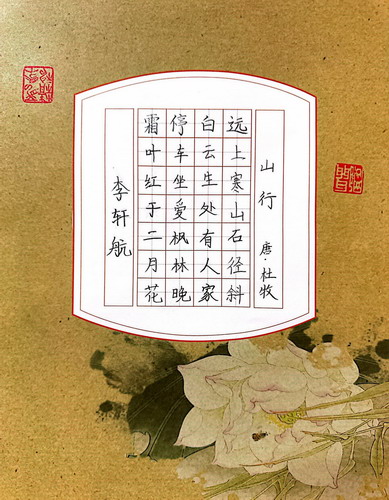 山行 唐·杜牧
远上寒山石径斜
白云生处有人家
停车坐爱枫林晚
霜叶红于二月花
李轩航